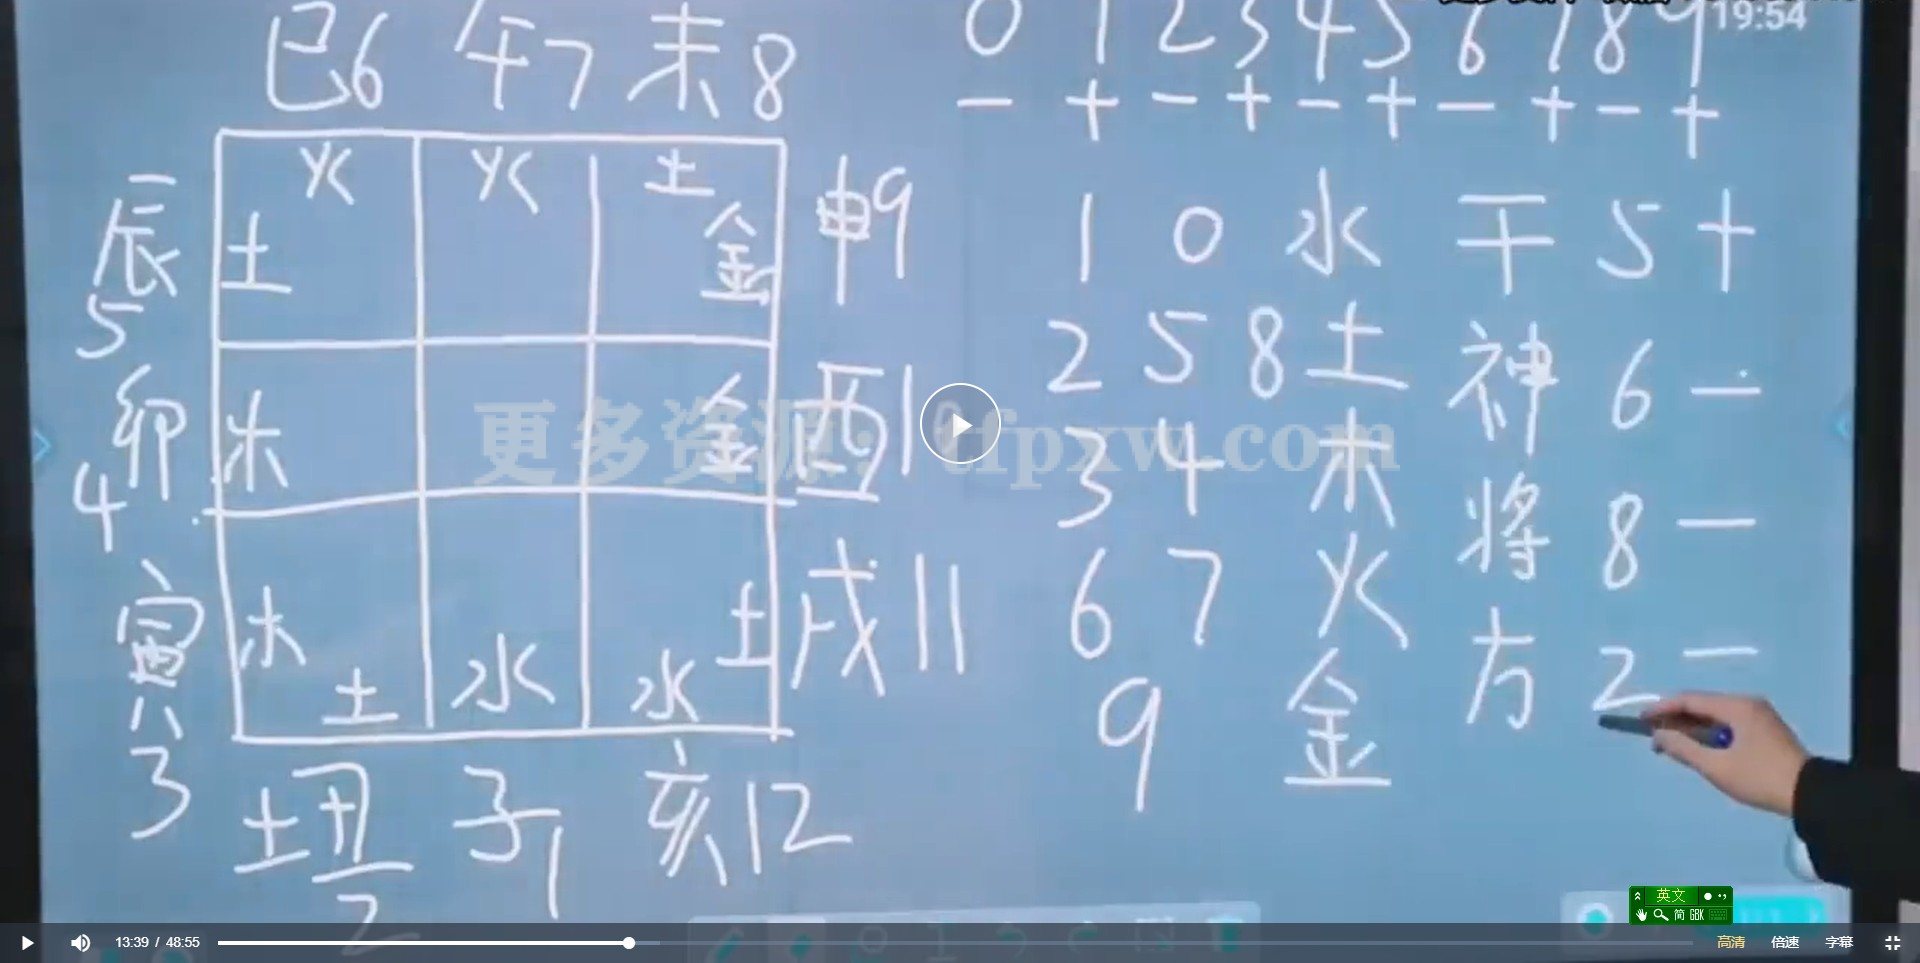 19:54
0 1 2 3 4 5 6 7 8 9
− + − + − + − + − +
巳6 午7 未8
火 火 土
辰5 土 金 申9
卯4 木 金 酉1
寅3 木 土 戌11
土 水 水
土丑2 子1 亥12
1 0 水 干 5 +
2 5 8 土 神 6 −
3 4 木 将 8 −
6 7 火 方 2 −
9 金
更多资源: tfpxw.com
英文
简 GBK
13:39 / 48:55
高清 倍速 字幕